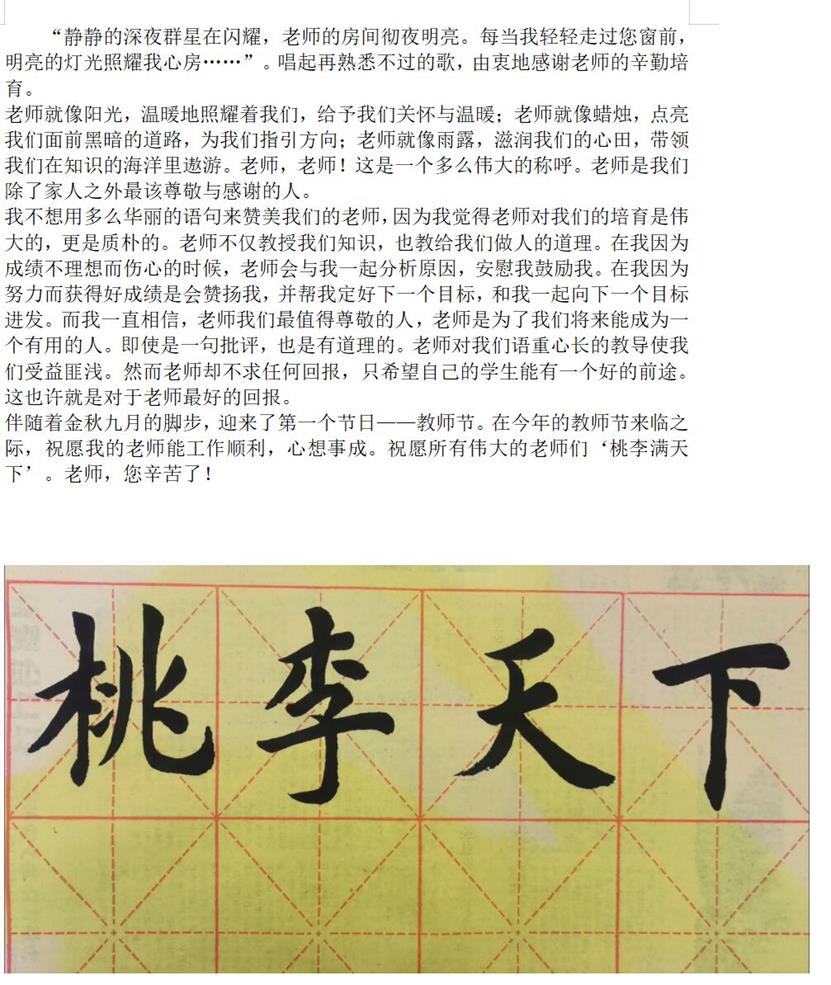 “静静的深夜群星在闪耀，老师的房间彻夜明亮。每当我轻轻走过您窗前，
明亮的灯光照耀我心房……”。唱起再熟悉不过的歌，由衷地感谢老师的辛勤培
育。
老师就像阳光，温暖地照耀着我们，给予我们关怀与温暖；老师就像蜡烛，点亮
我们面前黑暗的道路，为我们指引方向；老师就像雨露，滋润我们的心田，带领
我们在知识的海洋里遨游。老师，老师！这是一个多么伟大的称呼。老师是我们
除了家人之外最该尊敬与感谢的人。
我不想用多么华丽的语句来赞美我们的老师，因为我觉得老师对我们的培育是伟
大的，更是质朴的。老师不仅教授我们知识，也教给我们做人的道理。在我因为
成绩不理想而伤心的时候，老师会与我一起分析原因，安慰我鼓励我。在我因为
努力而获得好成绩是会赞扬我，并帮我定好下一个目标，和我一起向下一个目标
进发。而我一直相信，老师我们最值得尊敬的人，老师是为了我们将来能成为一
个有用的人。即使是一句批评，也是有道理的。老师对我们语重心长的教导使我
们受益匪浅。然而老师却不求任何回报，只希望自己的学生能有一个好的前途。
这也许就是对于老师最好的回报。
伴随着金秋九月的脚步，迎来了第一个节日——教师节。在今年的教师节来临之
际，祝愿我的老师能工作顺利，心想事成。祝愿所有伟大的老师们‘桃李满天
下’。老师，您辛苦了！
桃李天下